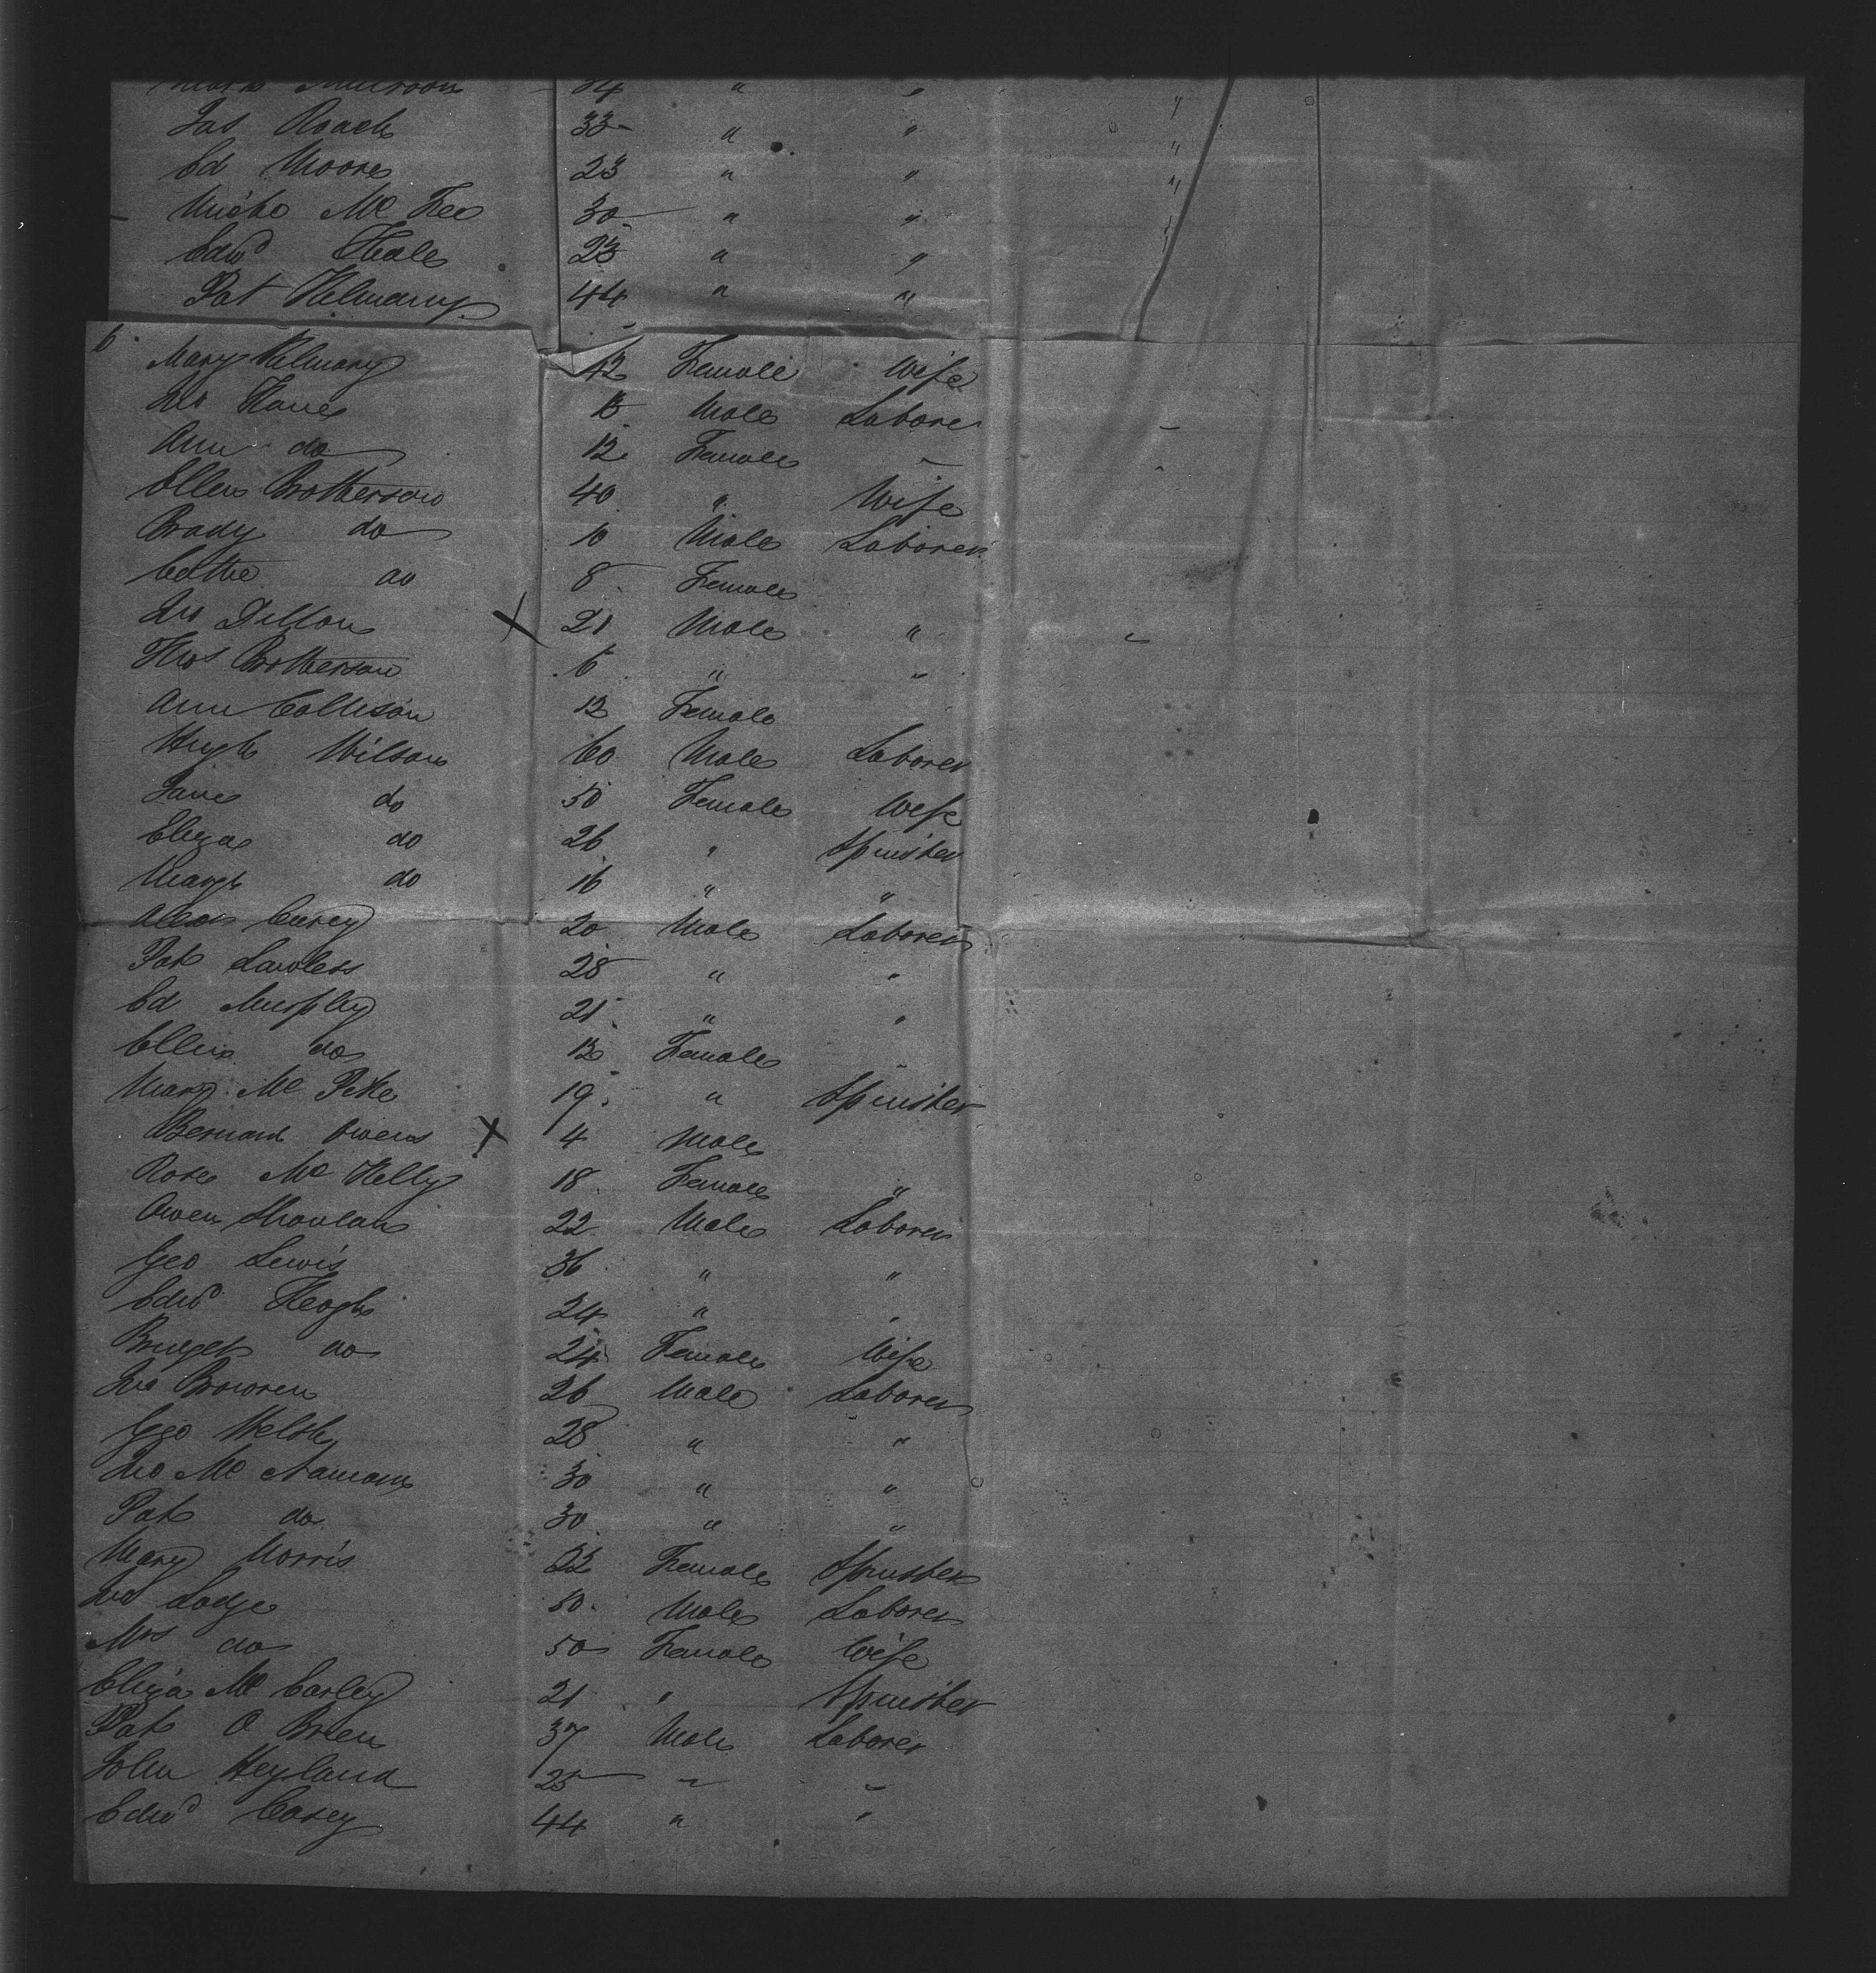 34 " "
Jas Roach 33 " "
Ed Moore 23 " "
Micho Mc Fee 30 " "
Edwd Hale 23 " "
Pat Kilmary 44 " "
6.
Mary Kilmary 42 Female Wife
Jno Kane 13 Male Laborer
Ann do 12 Female "
Ellen Brotherson 40 " Wife
Brady do 10 Male Laborer
Cathe do 8 Female
Jno Dillon X 21 Male "
Thos Brotherson 6 " "
Ann Collison 13 Female
Hugh Wilson 60 Male Laborer
Jane do 50 Female Wife
Eliza do 26 " Spinster
Margt do 16 " "
Alexr Carey 20 Male Laborer
Pat Lawless 28 " "
Ed Murphy 21 " "
Ellen do 13 Female "
Mary Mc Pike 19 " Spinster
Bernard Owens X 4 Male
Rose Mc Kelly 18 Female "
Owen Shanlan 22 Male Laborer
Geo Lewis 36 " "
Edwd Keogh 24 " "
Bridget do 24 Female Wife
Jno Browren 26 Male Laborer
Geo Welsh 28 " "
Jno Mc Namara 30 " "
Pat do 30 " "
Mary Morris 22 Female Spinster
Jno Lodge 50 Male Laborer
Mrs do 50 Female Wife
Eliza Mc Carley 21 " Spinster
Pat O Brien 37 Male Laborer
John Heyland 25 " "
Edwd Casey 44 " "